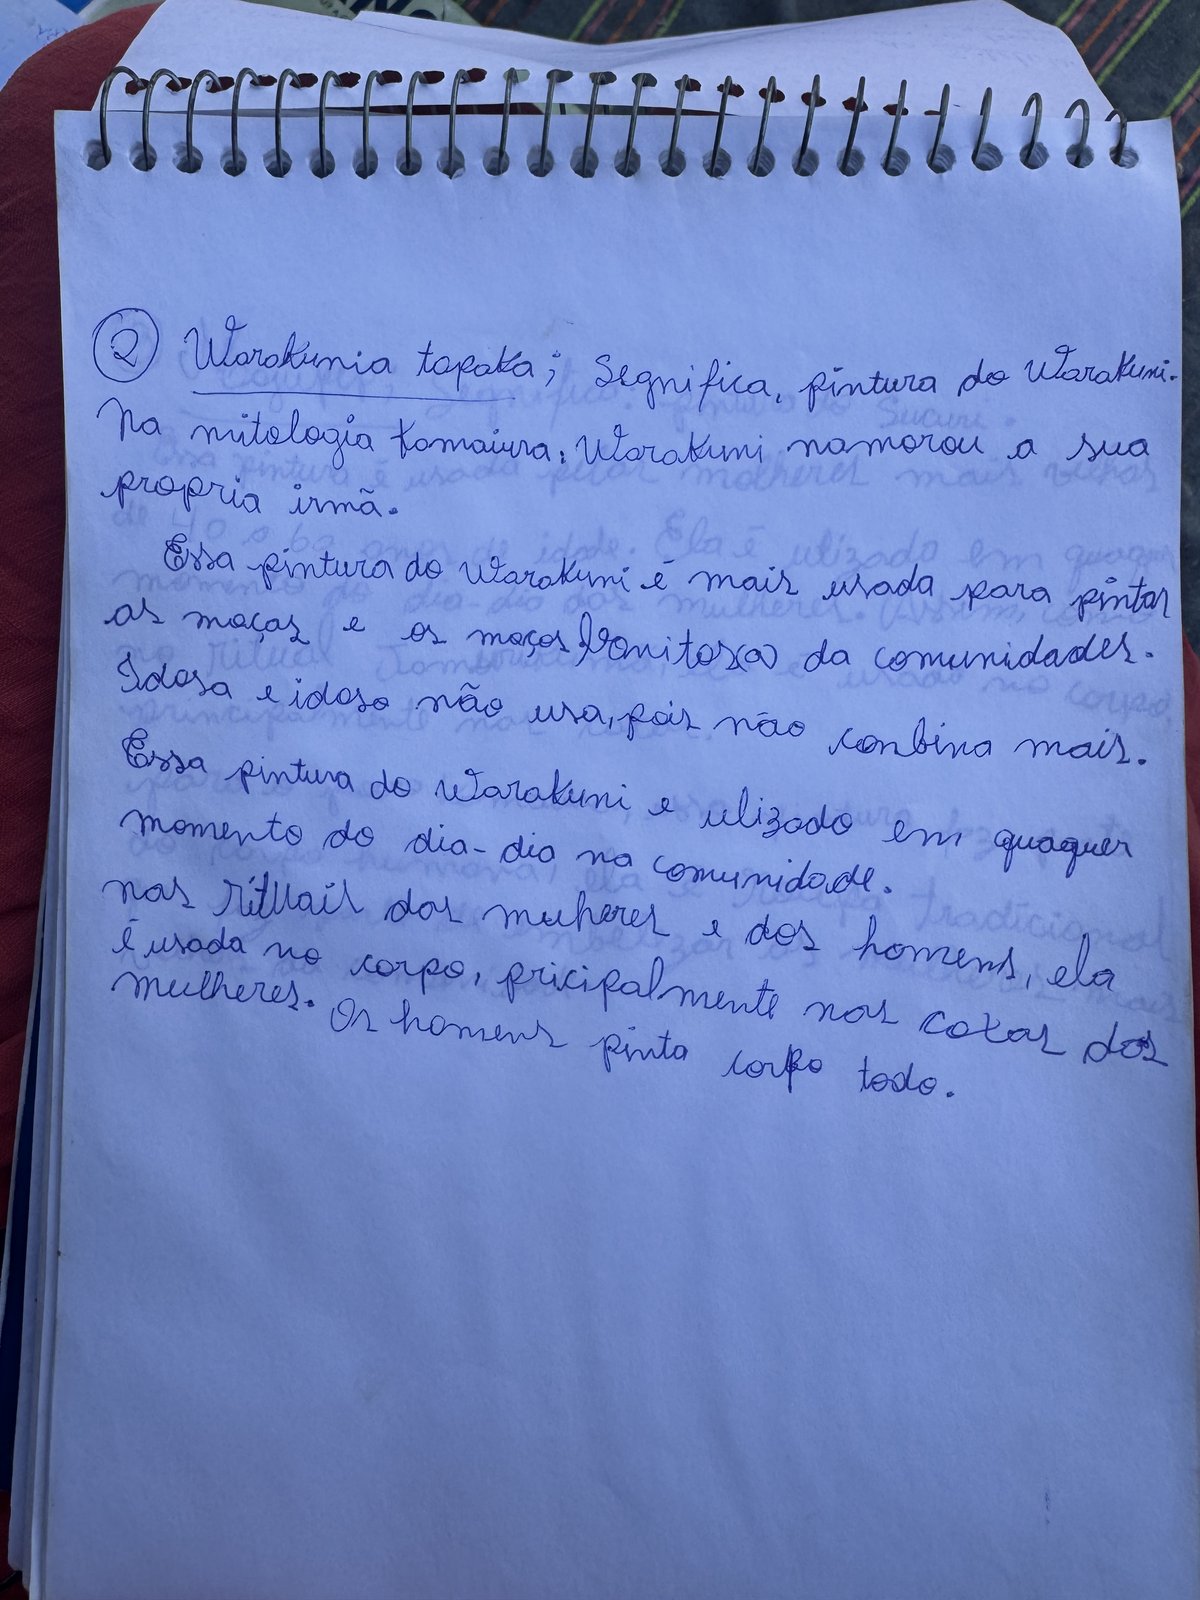 2 Warakunia tapaka; Segnifica, pintura do Warakuni.
Na mitologia Kamaiura, Warakuni namorou a sua
propria irmã.
Essa pintura do Warakuni é mais usada para pintar
as moças e os moços bonitos(a) da comunidades.
Idosa e idoso não usa, pois não conbina mais.
Essa pintura do Warakuni e ulizado em quaquer
momento do dia-dia na comunidade.
nas rituais das muheres e dos homens, ela
é usada no corpo, pricipalmente nas coxas das
mulheres. Os homens pinta corpo todo.